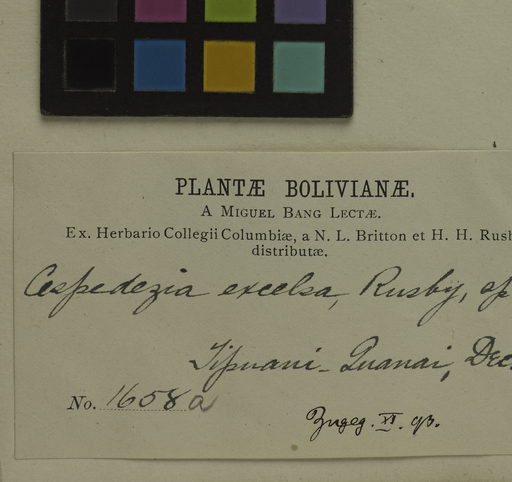 PLANTÆ BOLIVIANÆ.
A MIGUEL BANG LECTÆ.
Ex. Herbario Collegii Columbiæ, a N. L. Britton et H. H. Rusb
distributæ.
Cespedezia excelsa, Rusby, sp
Tipuani - Guanai, Dec.
No. 1658a
Zugeg. XI. 93.